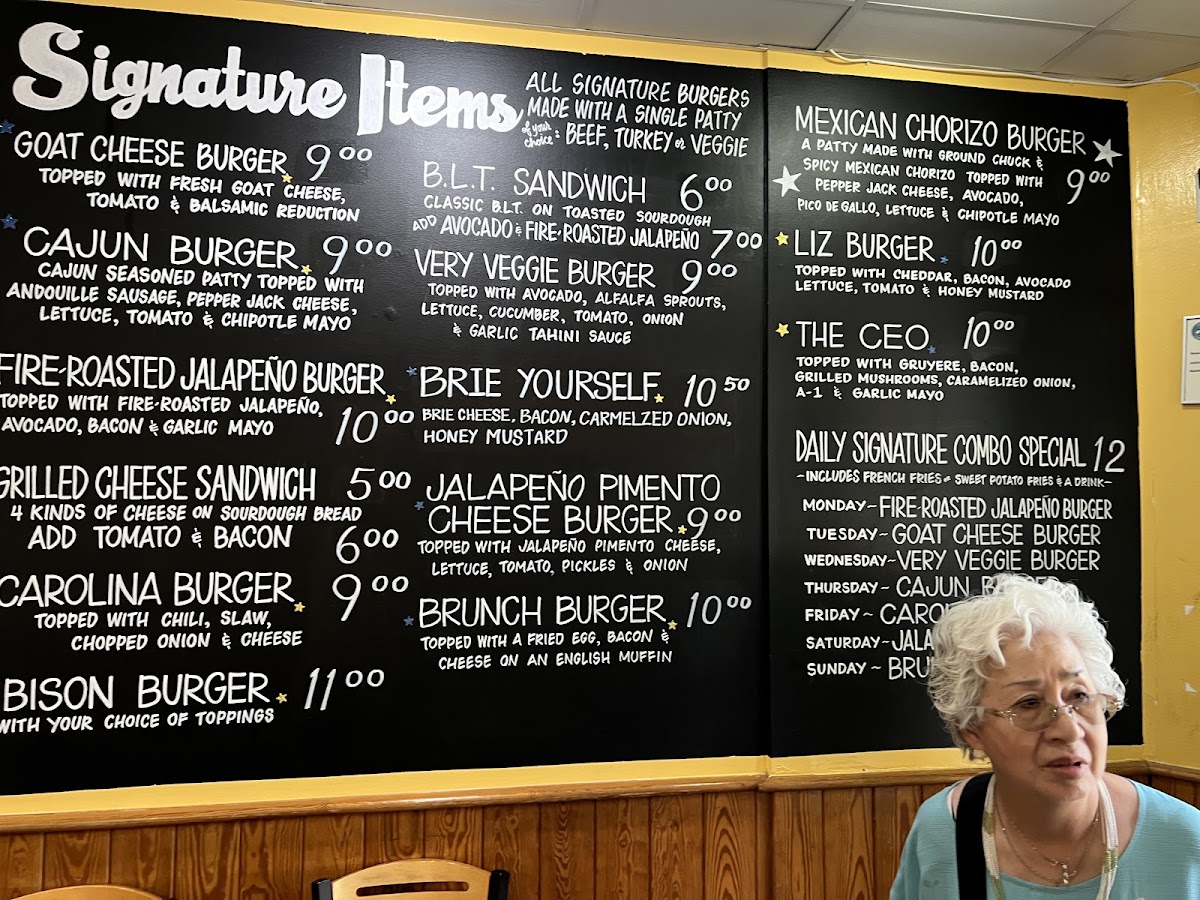 Signature Items
ALL SIGNATURE BURGERS
MADE WITH A SINGLE PATTY
of your choice: BEEF, TURKEY or VEGGIE
GOAT CHEESE BURGER 9⁰⁰
TOPPED WITH FRESH GOAT CHEESE,
TOMATO & BALSAMIC REDUCTION
CAJUN BURGER 9⁰⁰
CAJUN SEASONED PATTY TOPPED WITH
ANDOUILLE SAUSAGE, PEPPER JACK CHEESE,
LETTUCE, TOMATO & CHIPOTLE MAYO
FIRE-ROASTED JALAPEÑO BURGER
TOPPED WITH FIRE-ROASTED JALAPEÑO,
AVOCADO, BACON & GARLIC MAYO 10⁰⁰
GRILLED CHEESE SANDWICH 5⁰⁰
4 KINDS OF CHEESE ON SOURDOUGH BREAD
ADD TOMATO & BACON 6⁰⁰
CAROLINA BURGER 9⁰⁰
TOPPED WITH CHILI, SLAW,
CHOPPED ONION & CHEESE
BISON BURGER 11⁰⁰
WITH YOUR CHOICE OF TOPPINGS
B.L.T. SANDWICH 6⁰⁰
CLASSIC B.L.T. ON TOASTED SOURDOUGH
ADD AVOCADO & FIRE-ROASTED JALAPEÑO 7⁰⁰
VERY VEGGIE BURGER 9⁰⁰
TOPPED WITH AVOCADO, ALFALFA SPROUTS,
LETTUCE, CUCUMBER, TOMATO, ONION
& GARLIC TAHINI SAUCE
BRIE YOURSELF 10⁵⁰
BRIE CHEESE, BACON, CARMELZED ONION,
HONEY MUSTARD
JALAPEÑO PIMENTO
CHEESE BURGER 9⁰⁰
TOPPED WITH JALAPEÑO PIMENTO CHEESE,
LETTUCE, TOMATO, PICKLES & ONION
BRUNCH BURGER 10⁰⁰
TOPPED WITH A FRIED EGG, BACON &
CHEESE ON AN ENGLISH MUFFIN
MEXICAN CHORIZO BURGER
A PATTY MADE WITH GROUND CHUCK &
SPICY MEXICAN CHORIZO TOPPED WITH 9⁰⁰
PEPPER JACK CHEESE, AVOCADO,
PICO DE GALLO, LETTUCE & CHIPOTLE MAYO
LIZ BURGER 10⁰⁰
TOPPED WITH CHEDDAR, BACON, AVOCADO
LETTUCE, TOMATO & HONEY MUSTARD
THE CEO 10⁰⁰
TOPPED WITH GRUYERE, BACON,
GRILLED MUSHROOMS, CARAMELIZED ONION,
A-1 & GARLIC MAYO
DAILY SIGNATURE COMBO SPECIAL 12
-INCLUDES FRENCH FRIES or SWEET POTATO FRIES & A DRINK-
MONDAY~FIRE-ROASTED JALAPEÑO BURGER
TUESDAY~GOAT CHEESE BURGER
WEDNESDAY~VERY VEGGIE BURGER
THURSDAY~CAJUN
FRIDAY~CARO
SATURDAY~JALA
SUNDAY~BRU